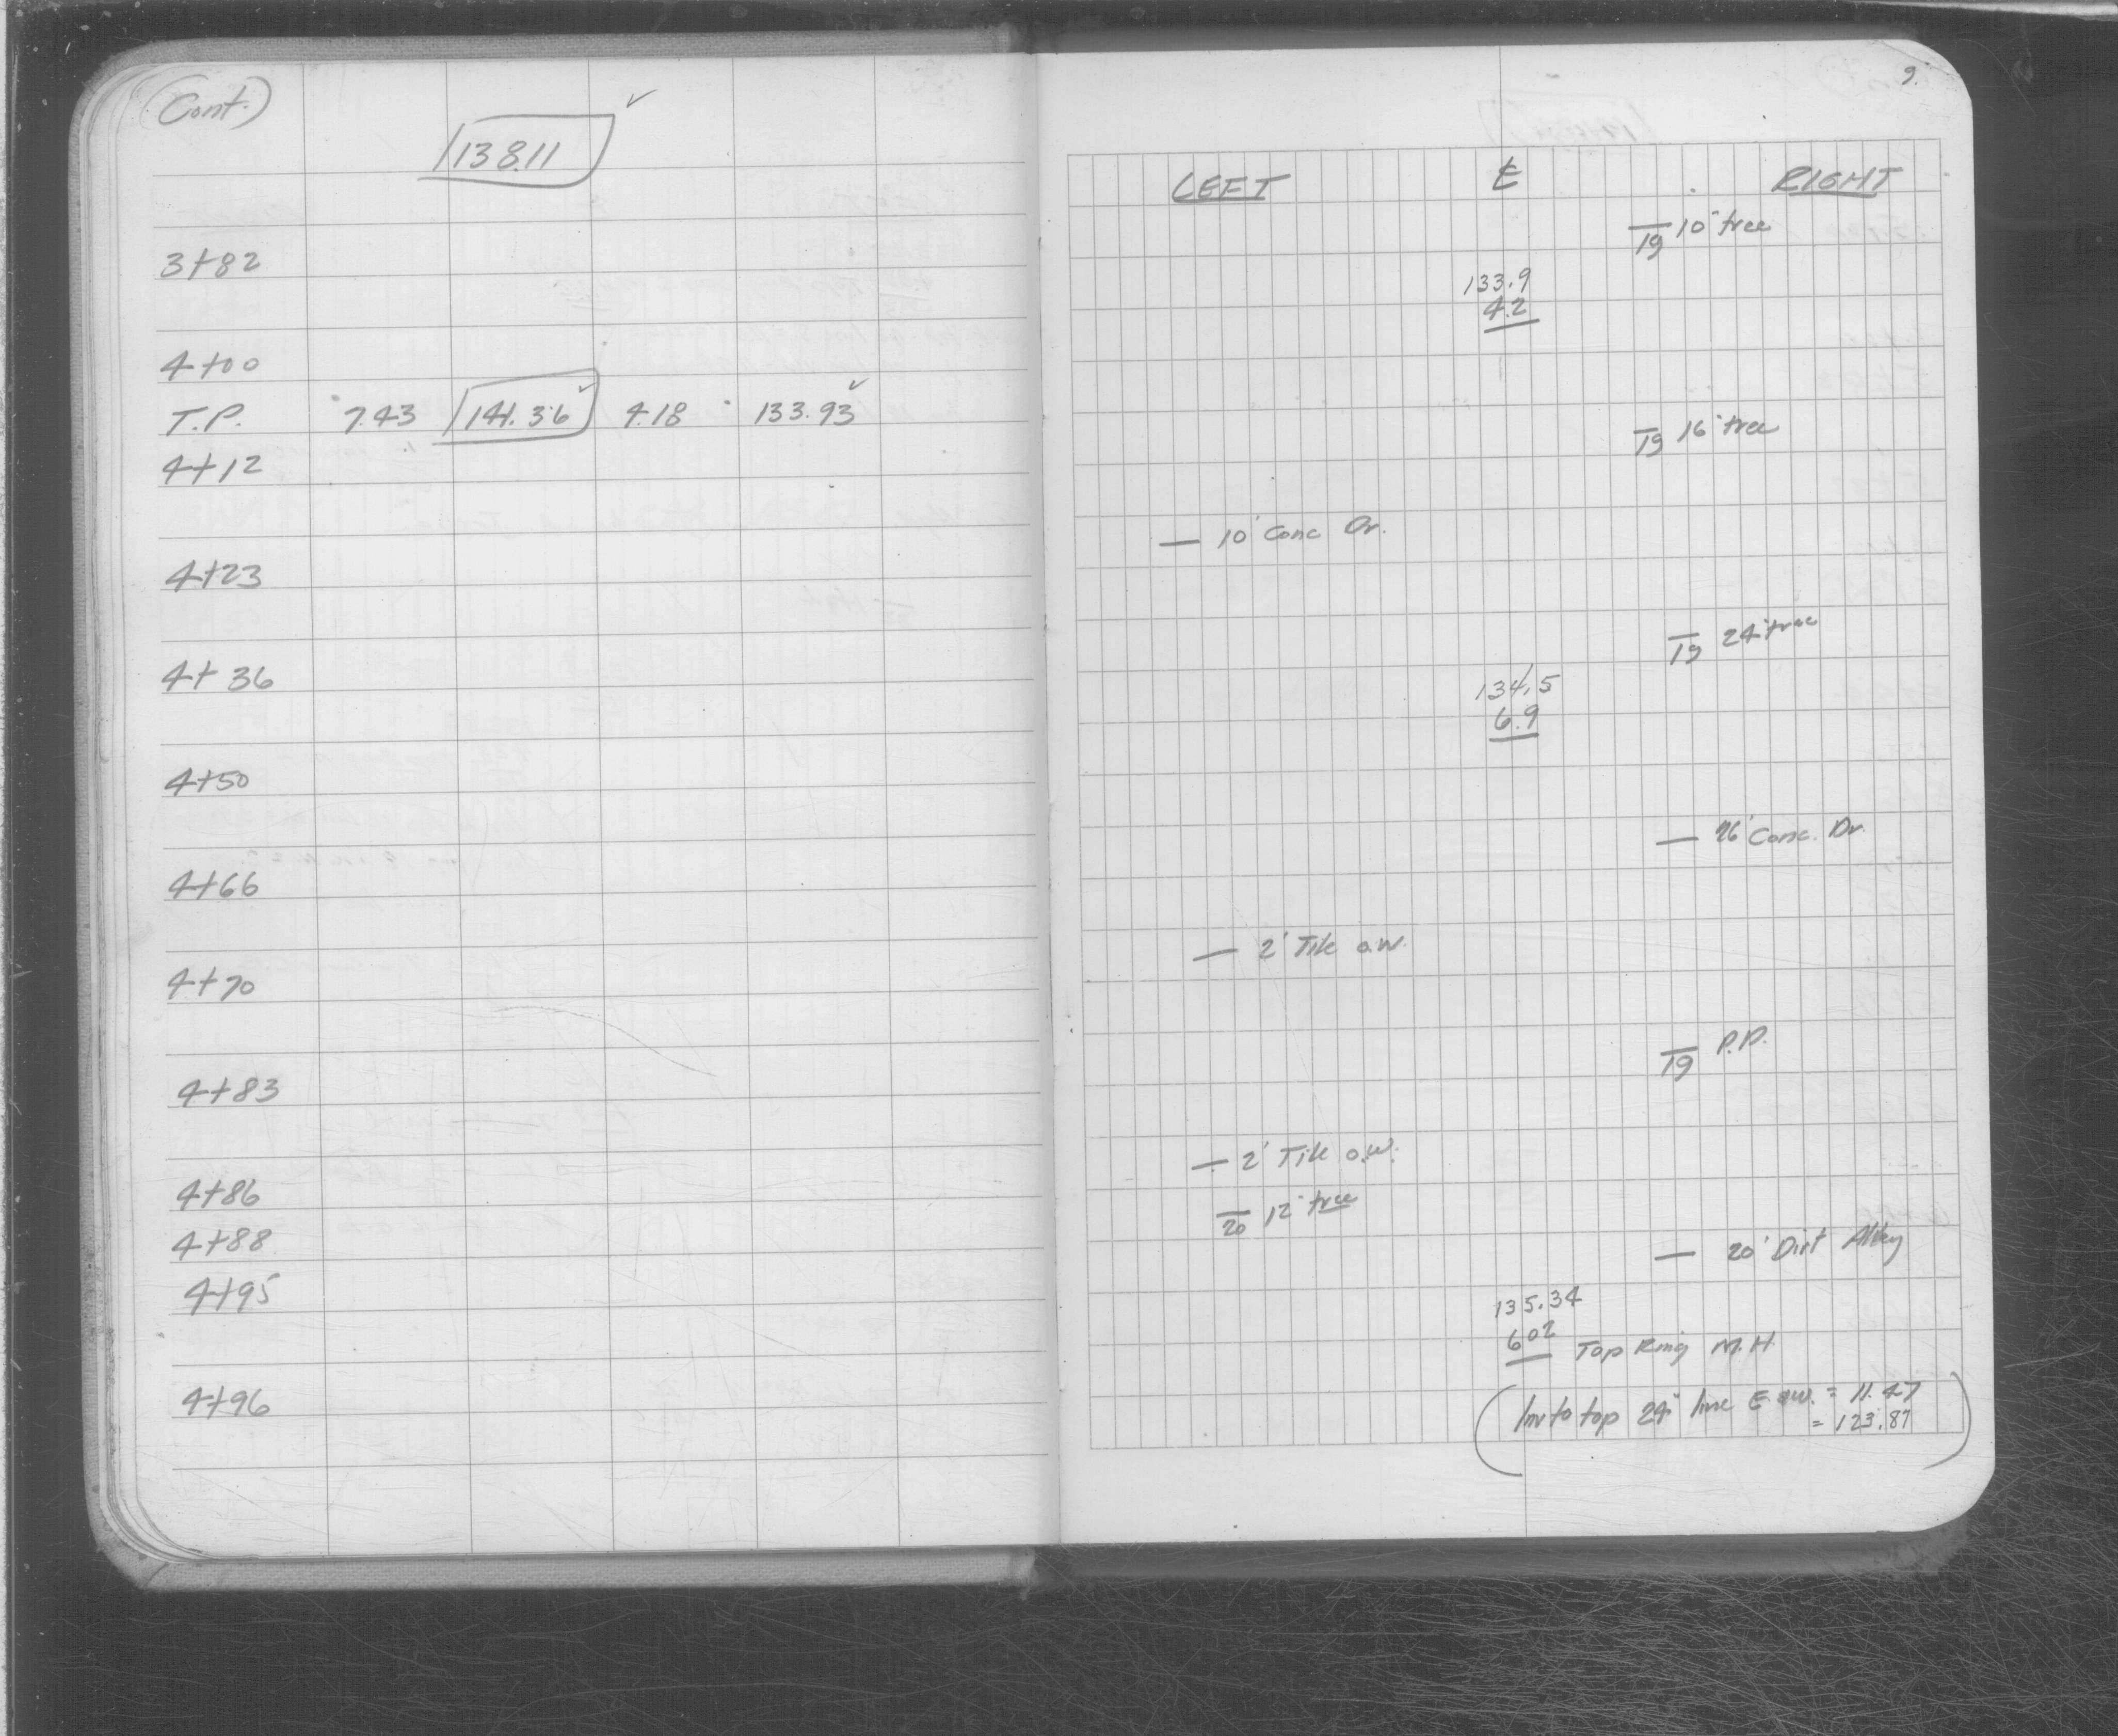 (Cont.)
138.11 ✓
3+82
4+00
T.P. 7.43 141.36 ✓ 4.18 133.93 ✓
4+12
4+23
4+36
4+50
4+66
4+70
4+83
4+86
4+88
4+95
4+96
9.
LEFT ₵ RIGHT
19 10" tree
133.9
4.2
19 16" tree
— 10' Conc Dr.
19 24" tree
134.5
6.9
— 26' Conc. Dr.
— 2' Tile
19 P.P.
— 2' Tile
20 12" tree
— 20' Dirt Alley
135.34
6.02 Top Ring M.H.
(Inv to top 24" line E = 11.47
= 123.87)